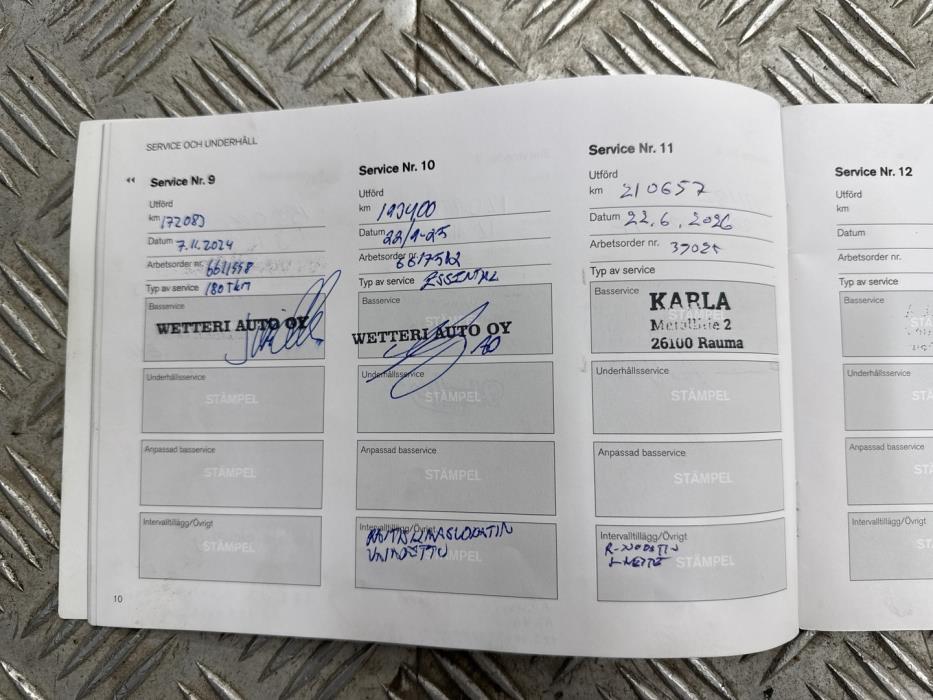 SERVICE OCH UNDERHÅLL
Service Nr. 9
Utförd
km 172083
Datum 7.11.2024
Arbetsorder nr.
Typ av service 180 Tkm
Basservice
WETTERI AUTO OY
Underhållsservice
STÄMPEL
Anpassad basservice
STÄMPEL
Intervalltillägg/Övrigt
STÄMPEL
10
Service Nr. 10
Utförd
km
Datum 22/9-25
Arbetsorder nr.
Typ av service
Basservice
WETTERI AUTO OY
Underhållsservice
STÄMPEL
Anpassad basservice
STÄMPEL
Intervalltillägg/Övrigt
Service Nr. 11
Utförd
km 210657
Datum 22.6.2026
Arbetsorder nr.
Typ av service
Basservice
KARLA
26100 Rauma
Underhållsservice
STÄMPEL
Anpassad basservice
STÄMPEL
Intervalltillägg/Övrigt
STÄMPEL
Service Nr. 12
Utförd
km
Datum
Arbetsorder nr.
Typ av service
Basservice
Underhållsservice
Anpassad basservice
Intervalltillägg/Övrigt